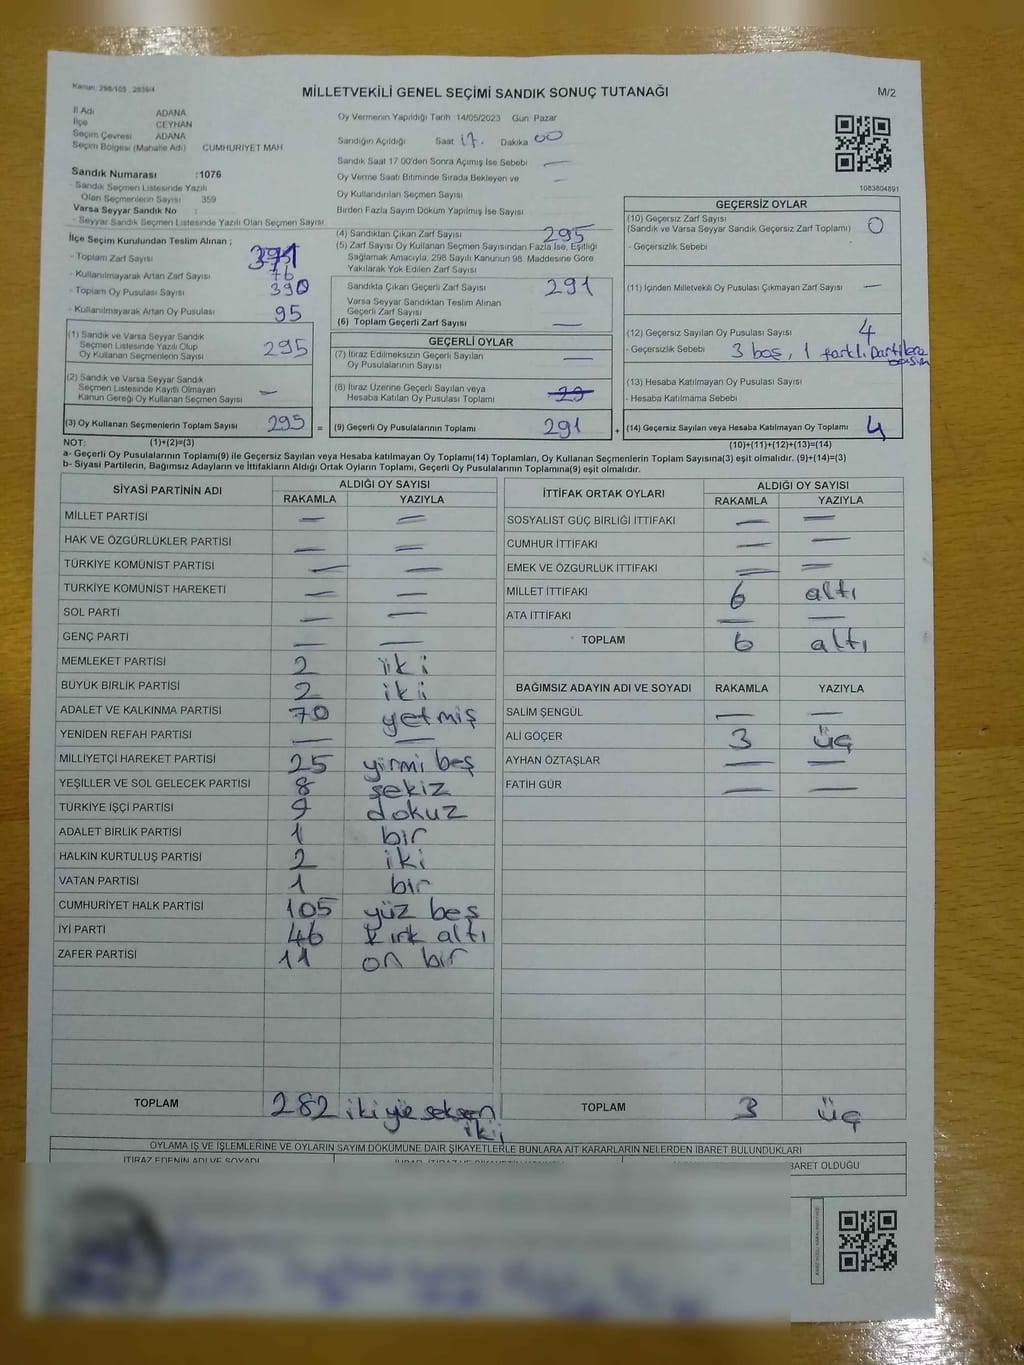 Kanun: 298/105 , 2839/4
MİLLETVEKİLİ GENEL SEÇİMİ SANDIK SONUÇ TUTANAĞI
M/2
İl Adı ADANA
İlçe CEYHAN
Seçim Çevresi ADANA
Seçim Bölgesi (Mahalle Adı) CUMHURİYET MAH
Oy Vermenin Yapıldığı Tarih 14/05/2023 Gün: Pazar
Sandığın Açıldığı Saat 17. Dakika 00
Sandık Saat 17:00'den Sonra Açımış İse Sebebi —
Oy Verme Saati Bitiminde Sırada Bekleyen ve —
Oy Kullandırılan Seçmen Sayısı
Birden Fazla Sayım Döküm Yapılmış İse Sayısı
1083804891
Sandık Numarası :1076
- Sandık Seçmen Listesinde Yazılı
Olan Seçmenlerin Sayısı 359
Varsa Seyyar Sandık No :
- Seyyar Sandık Seçmen Listesinde Yazılı Olan Seçmen Sayısı
İlçe Seçim Kurulundan Teslim Alınan ;
- Toplam Zarf Sayısı
- Kullanılmayarak Artan Zarf Sayısı 76
- Toplam Oy Pusulası Sayısı 390
- Kullanılmayarak Artan Oy Pusulası 95
(1) Sandık ve Varsa Seyyar Sandık
Seçmen Listesinde Yazılı Olup
Oy Kullanan Seçmenlerin Sayısı 295
(2) Sandık ve Varsa Seyyar Sandık
Seçmen Listesinde Kayıtlı Olmayan
Kanun Gereği Oy Kullanan Seçmen Sayısı —
(3) Oy Kullanan Seçmenlerin Toplam Sayısı 295 =
(4) Sandıktan Çıkan Zarf Sayısı 295
(5) Zarf Sayısı Oy Kullanan Seçmen Sayısından Fazla İse, Eşitliği
Sağlamak Amacıyla, 298 Sayılı Kanunun 98. Maddesine Göre
Yakılarak Yok Edilen Zarf Sayısı
Sandıkta Çıkan Geçerli Zarf Sayısı 291
Varsa Seyyar Sandıktan Teslim Alınan
Geçerli Zarf Sayısı
(6) Toplam Geçerli Zarf Sayısı —
GEÇERLİ OYLAR
(7) İtiraz Edilmeksizin Geçerli Sayılan
Oy Pusulalarının Sayısı —
(8) İtiraz Üzerine Geçerli Sayılan veya
Hesaba Katılan Oy Pusulası Toplamı 29
(9) Geçerli Oy Pusulalarının Toplamı 291 +
GEÇERSİZ OYLAR
(10) Geçersiz Zarf Sayısı
(Sandık ve Varsa Seyyar Sandık Geçersiz Zarf Toplamı) 0
- Geçersizlik Sebebi
(11) İçinden Milletvekili Oy Pusulası Çıkmayan Zarf Sayısı —
(12) Geçersiz Sayılan Oy Pusulası Sayısı 4
- Geçersizlik Sebebi 3 boş, 1 farklı partilere
(13) Hesaba Katılmayan Oy Pusulası Sayısı
- Hesaba Katılmama Sebebi
(14) Geçersiz Sayılan veya Hesaba Katılmayan Oy Toplamı 4
NOT: (1)+(2)=(3)
(10)+(11)+(12)+(13)=(14)
a- Geçerli Oy Pusulalarının Toplamı(9) ile Geçersiz Sayılan veya Hesaba Katılmayan Oy Toplamı(14) Toplamları, Oy Kullanan Seçmenlerin Toplam Sayısına(3) eşit olmalıdır. (9)+(14)=(3)
b- Siyasi Partilerin, Bağımsız Adayların ve İttifakların Aldığı Ortak Oyların Toplamı, Geçerli Oy Pusulalarının Toplamına(9) eşit olmalıdır.
SİYASİ PARTİNİN ADI ALDIĞI OY SAYISI
RAKAMLA YAZIYLA
MİLLET PARTİSİ — —
HAK VE ÖZGÜRLÜKLER PARTİSİ — —
TÜRKİYE KOMÜNİST PARTİSİ — —
TÜRKİYE KOMÜNİST HAREKETİ — —
SOL PARTİ — —
GENÇ PARTİ — —
MEMLEKET PARTİSİ 2 iki
BÜYÜK BİRLİK PARTİSİ 2 iki
ADALET VE KALKINMA PARTİSİ 70 yetmiş
YENİDEN REFAH PARTİSİ — —
MİLLİYETÇİ HAREKET PARTİSİ 25 yirmi beş
YEŞİLLER VE SOL GELECEK PARTİSİ 8 sekiz
TÜRKİYE İŞÇİ PARTİSİ 9 dokuz
ADALET BİRLİK PARTİSİ 1 bir
HALKIN KURTULUŞ PARTİSİ 2 iki
VATAN PARTİSİ 1 bir
CUMHURİYET HALK PARTİSİ 105 yüz beş
İYİ PARTİ 46 kırk altı
ZAFER PARTİSİ 11 on bir
TOPLAM 282 iki yüz seksen
iki
İTTİFAK ORTAK OYLARI ALDIĞI OY SAYISI
RAKAMLA YAZIYLA
SOSYALİST GÜÇ BİRLİĞİ İTTİFAKI — —
CUMHUR İTTİFAKI — —
EMEK VE ÖZGÜRLÜK İTTİFAKI — —
MİLLET İTTİFAKI 6 altı
ATA İTTİFAKI — —
TOPLAM 6 altı
BAĞIMSIZ ADAYIN ADI VE SOYADI RAKAMLA YAZIYLA
SALİM ŞENGÜL — —
ALİ GÖÇER 3 üç
AYHAN ÖZTAŞLAR — —
FATİH GÜR — —
TOPLAM 3 üç
OYLAMA İŞ VE İŞLEMLERİNE VE OYLARIN SAYIM DÖKÜMÜNE DAİR ŞİKAYETLERLE BUNLARA AİT KARARLARIN NELERDEN İBARET BULUNDUKLARI
İTİRAZ EDENİN ADI VE SOYADI
BARET OLDUĞU